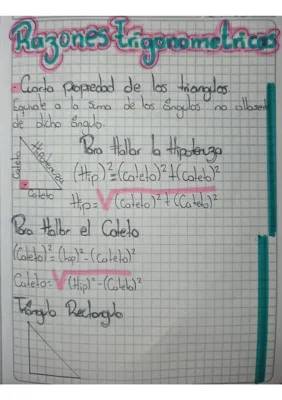 Razones trigonometricas
Cuarta propiedad de los triangulos.
Equivale a la suma de los angulos no
de dicho angulo.
Para Hallar la Hipotenuza
Cateto
Hipotenuza
Cateto
(Hip)²=(Cateto)²+(Cateto)²
Hip=√(Cateto)²+(Cateto)²
Para Hallar el Cateto
(Cateto)²=(hip)²-(Cateto)²
Cateto=√(Hip)²-(Cateto)²
Triángulo Rectangulo